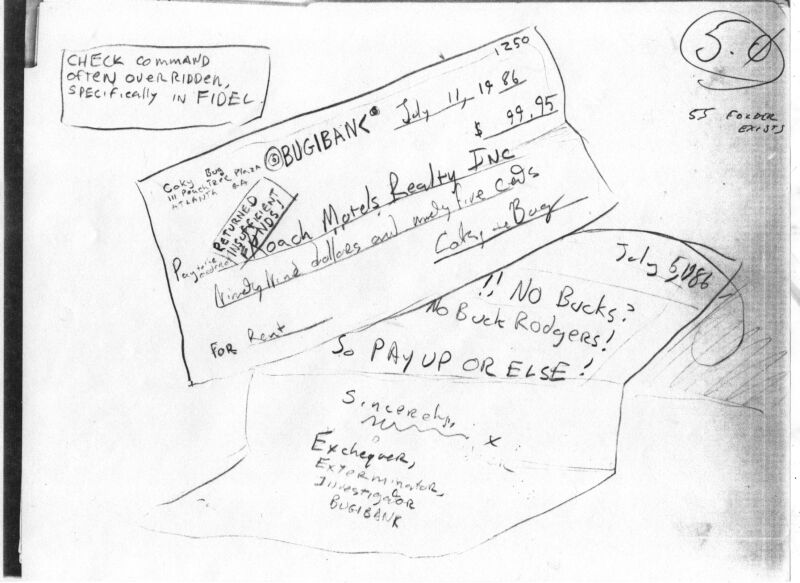 CHECK COMMAND
OFTEN OVERRIDDEN,
SPECIFICALLY IN FIDEL.
5.0
55 FOLDER
EXISTS
1250
July 11, 1986
$ 99.95
BUGIBANK
Coky Bug
111 PEACHTREE PLAZA
ATLANTA GA
RETURNED
INSUFFICIENT
FUNDS!
Pay to the
Roach Motels Realty INC
Ninety Nine dollars and ninety five
Coky Bug
FOR Rent
July 5, 1986
!! NO BUCKS?
NO BUCK RODGERS!
SO PAY UP OR ELSE!
Sincerely,
x
Exchequer,
EXTERMINATOR,
Investigator
BUGIBANK